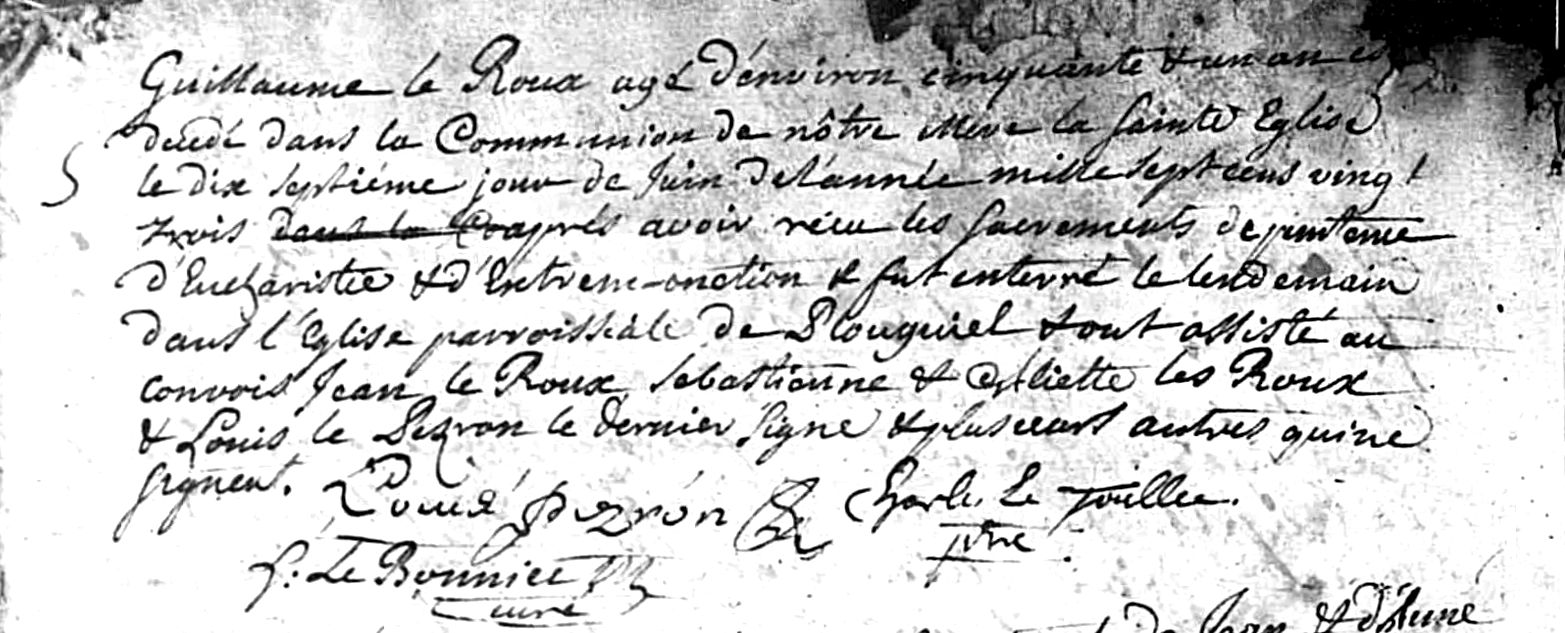 Guillaume le Roux agé d'environ cinquante & un an est
decedé dans la Communion de nôtre Mere la Sainte Eglise
le dix septiéme jour de Juin de l'année mille sept cens vingt
trois dans la Co aprés avoir récu les Sacrements de penitence
d'Eucharistie & d'Extreme-onction & fut enterré le lendemain
dans l'Eglise parroissiale de Plouguiel & ont assisté au
convois Jean le Roux, Sebastienne & les Roux
& Louis le Pezron le dernier Signe & plusieurs autres qui ne
signent. Pezron Charle Le
ptre
Le Bonniec
curé
de Jean &